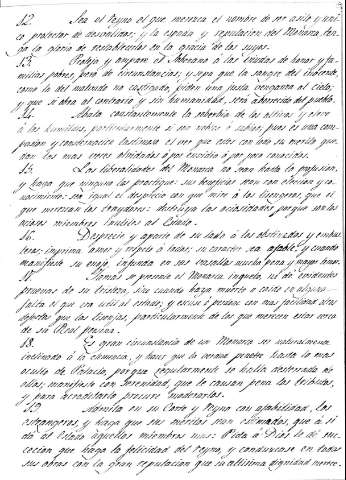 12. Sea el Reyno el que merezca el nombre de ser asilo y uni-
co protector de desvalidos; y la opinión y reputacion del Monarca ten-
ga la gloria de restablecerlos en la gracia de los suyos.
13. Proteja y ampare el Soberano á las viudas de honor y fa-
milias pobres, pero de circunstancias; y sepa que la sangre del inocente
como la del malvado no castigado, piden una justa venganza al cielo;
y que si obra al contrario y sin humanidad, será aborrecido del pueblo.
14. Abata constantemente la soberbia de los altivos y eleve
á los humildes, particularmente á ser nobles ó sabios; pues es una com-
pasion y consternacion lastimosa el ver que estos con todo su merito que-
dan las mas veces olvidados ó por envidia ó por poco conocidos.
15. Las liberalidades del Monarca no sean hasta la profusion,
y haga que ninguno las practique: sus beneficios sean con eleccion y co-
nocimiento: sea igual el desprecio con que mire á los lisongeros, que el
que merezcan los traydores: destruya las ociosidades porque son los
peores miembros inutiles del Estado.
16. Desprecie y aparte de su lado á los obstinados y embus-
teros; imprima amor y respeto á todos; su caracter sea afable; y cuando
manifieste su enojo, infunda en sus vasallos mucha pena y mayor temor.
17. Jamas se presente el Monarca inquieto, ni dé evidentes
pruebas de su tristeza, sino cuando haya muerto ó caido en alguna
falta el que era util al estado; y escuse ó perdone con mas facilidad otros
defectos que las lisonjas, particularmente de los que merecen estar cerca
de su Real persona.
18. Es gran circunstancia de un Monarca ser naturalmente
inclinado á la clemencia, y hacer que la verdad penetre hasta lo mas
oculto de Palacio, porque regularmente se halla desterrada de
ellos; manifieste con serenidad, que le causan pena los tributos,
y para acreditarlo procure moderarlos.
19. Admita en su Corte y Reyno con afabilidad, los
estrangeros, y haga que sus meritos sean estimados, que á si
dá al Estado aquellos miembros mas: Pida á Dios le dé su-
cesion que haga la felicidad del Reyno, y conduzcase en todas
sus obras con la gran reputacion que su altisima dignidad merece.